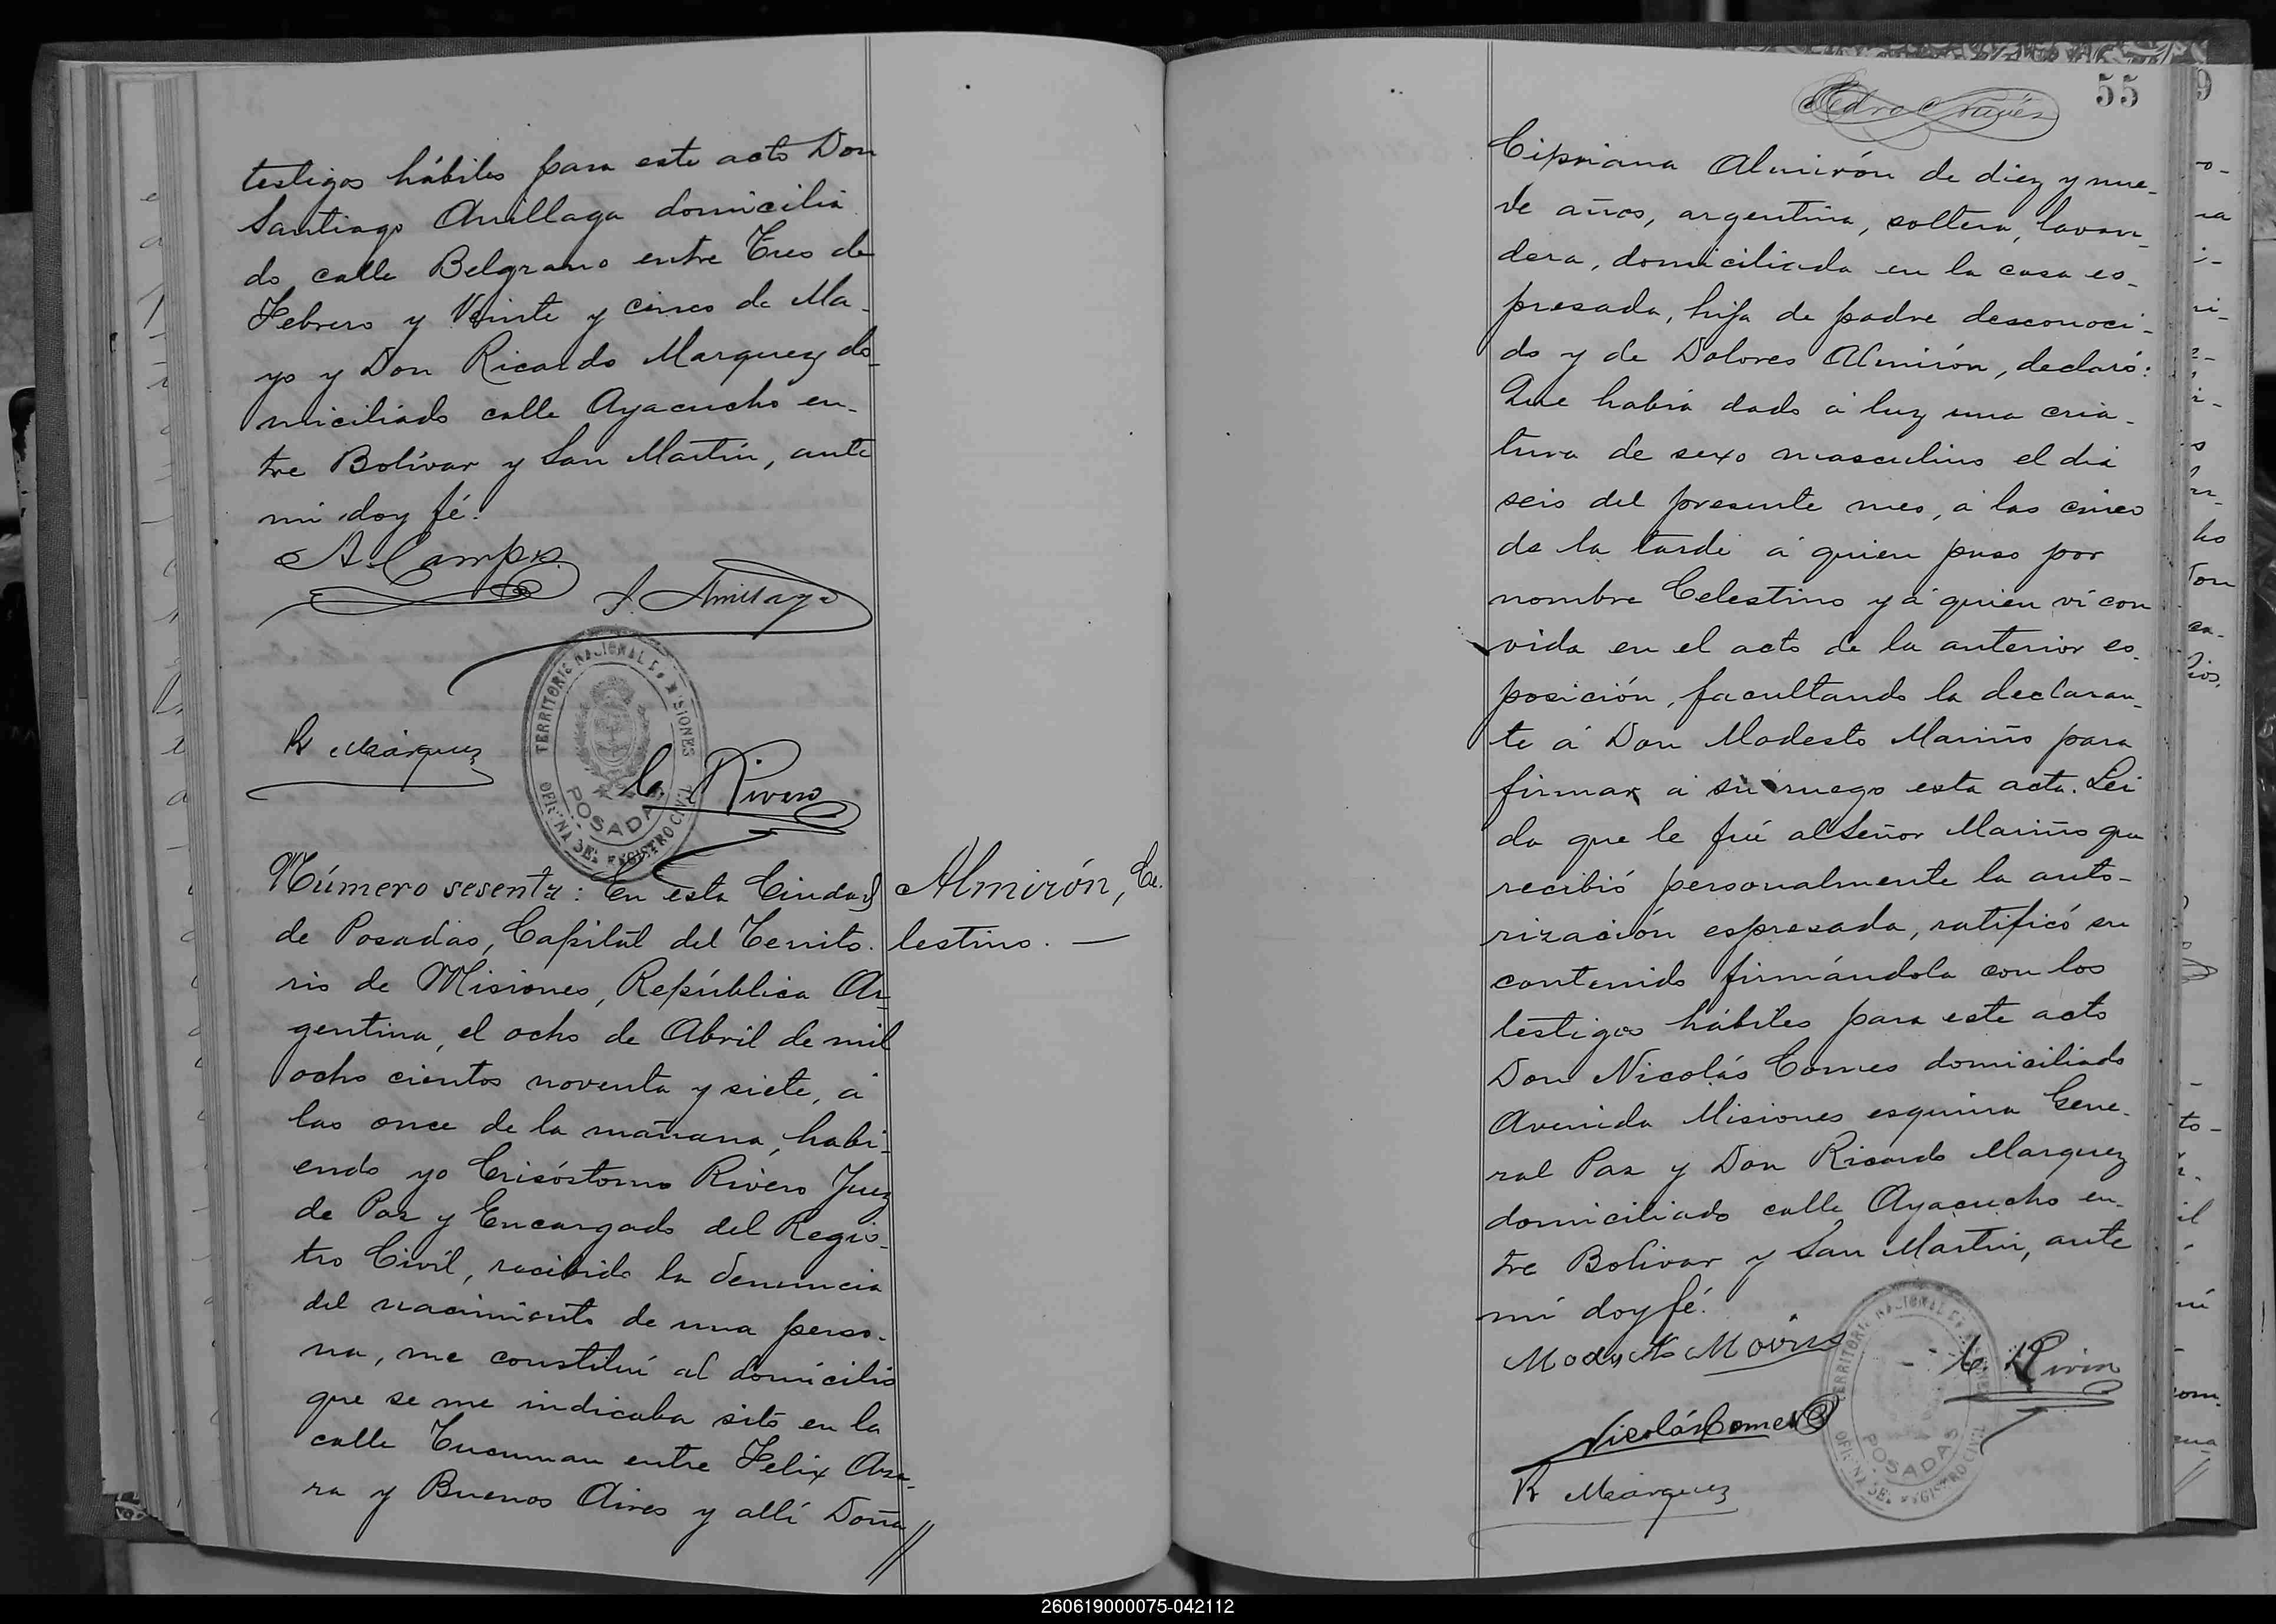 testigos hábiles para este acto Don
Santiago Arrillaga domicilia
do calle Belgrano entre Tres de
Febrero y Veinte y cinco de Ma-
yo y Don Ricardo Marquez do-
miciliado calle Ayacucho en-
tre Bolívar y San Martín, ante
mi doy fé.
A. Campos
S. Arrillaga
R Márquez
C. Rivero
TERRITORIO NACIONAL DE MISIONES
POSADAS
OFICINA DEL REGISTRO CIVIL
Número sesenta: En esta Ciudad
de Posadas, Capital del Territo-
rio de Misiones, República Ar-
gentina, el ocho de Abril de mil
ocho cientos noventa y siete, á
las once de la mañana, habi-
endo yo Crisóstomo Rivero Juez
de Paz y Encargado del Regis-
tro Civil, recibido la denuncia
del nacimiento de una perso-
na, me constituí al domicilio
que se me indicaba sito en la
calle Tucuman entre Felix Aza-
ra y Buenos Aires y allí Doña
Almirón, Ce-
lestino. —
55
Cipriana Almirón de diez y nue-
ve años, argentina, soltera, lavan-
dera, domiciliada en la casa es-
presada, hija de padre desconoci-
do y de Dolores Almirón, declaró:
Que habia dado á luz una cria-
tura de sexo masculino el dia
seis del presente mes, á las cinco
de la tarde á quien puso por
nombre Celestino y á quien ví con
vida en el acto de la anterior es-
posición, facultando la declaran-
te á Don Modesto Mariño para
firmar á su ruego esta acta. Lei
da que le fué al Señor Mariño que
recibió personalmente la auto-
rización espresada, ratificó su
contenido firmándola con los
testigos hábiles para este acto
Don Nicolás Comes domiciliado
Avenida Misiones esquina Gene-
ral Paz y Don Ricardo Marquez
domiciliado calle Ayacucho en-
tre Bolivar y San Martin, ante
mí doy fé.
Modesto Mariño
C. Rivero
Nicolás Comes
R Márquez
TERRITORIO NACIONAL DE MISIONES
POSADAS
OFICINA DEL REGISTRO CIVIL
260619000075-042112